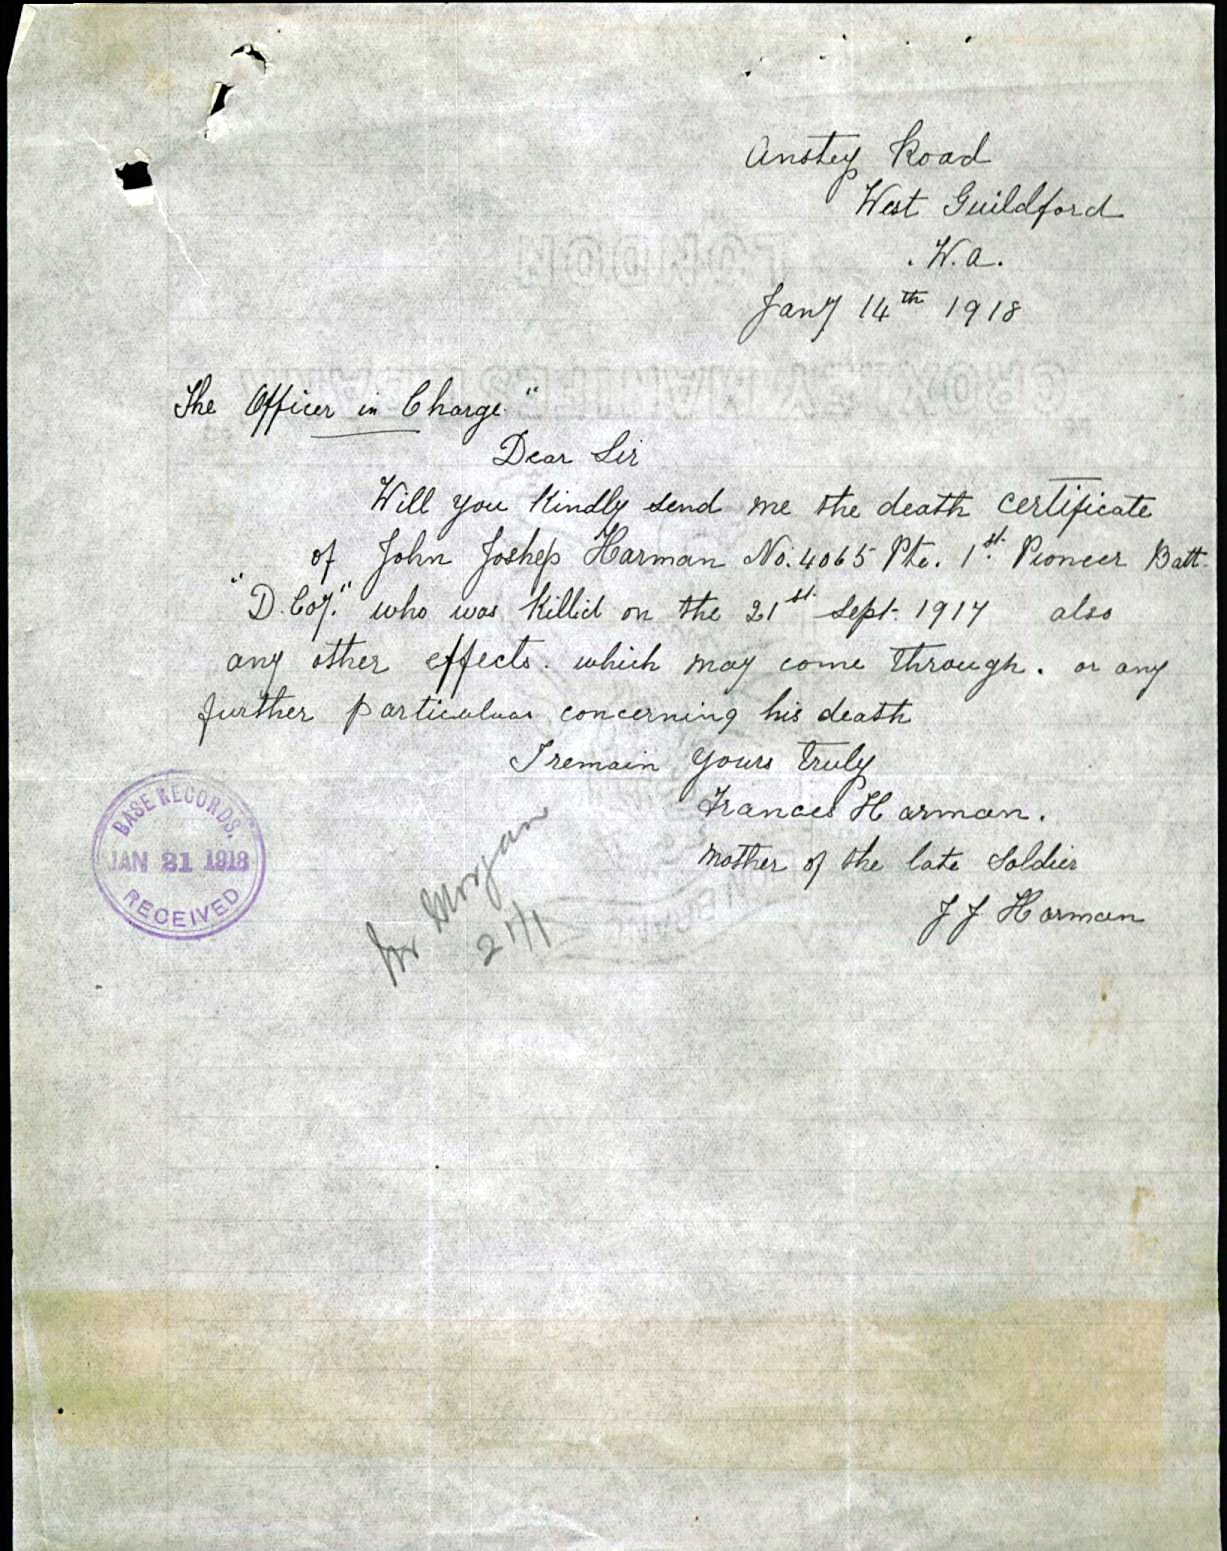 Anstey Road
West Guildford
. W.A.
Jany 14th 1918
The Officer in Charge"
Dear Sir
Will you kindly send me the death certificate
of John Joshep Harman No. 4065 Pte. 1st. Pioneer Batt.
"D. Coy." who was killed on the 21st. Sept. 1917 also
any other effects. which may come through. or any
further particulars concerning his death
I remain yours truly
Frances Harman.
mother of the late Soldier
J J Harman
BASE RECORDS,
JAN 21 1918
RECEIVED
Mr Morgan
21/1
LONDON
CROXLEY MANIFEST BANK